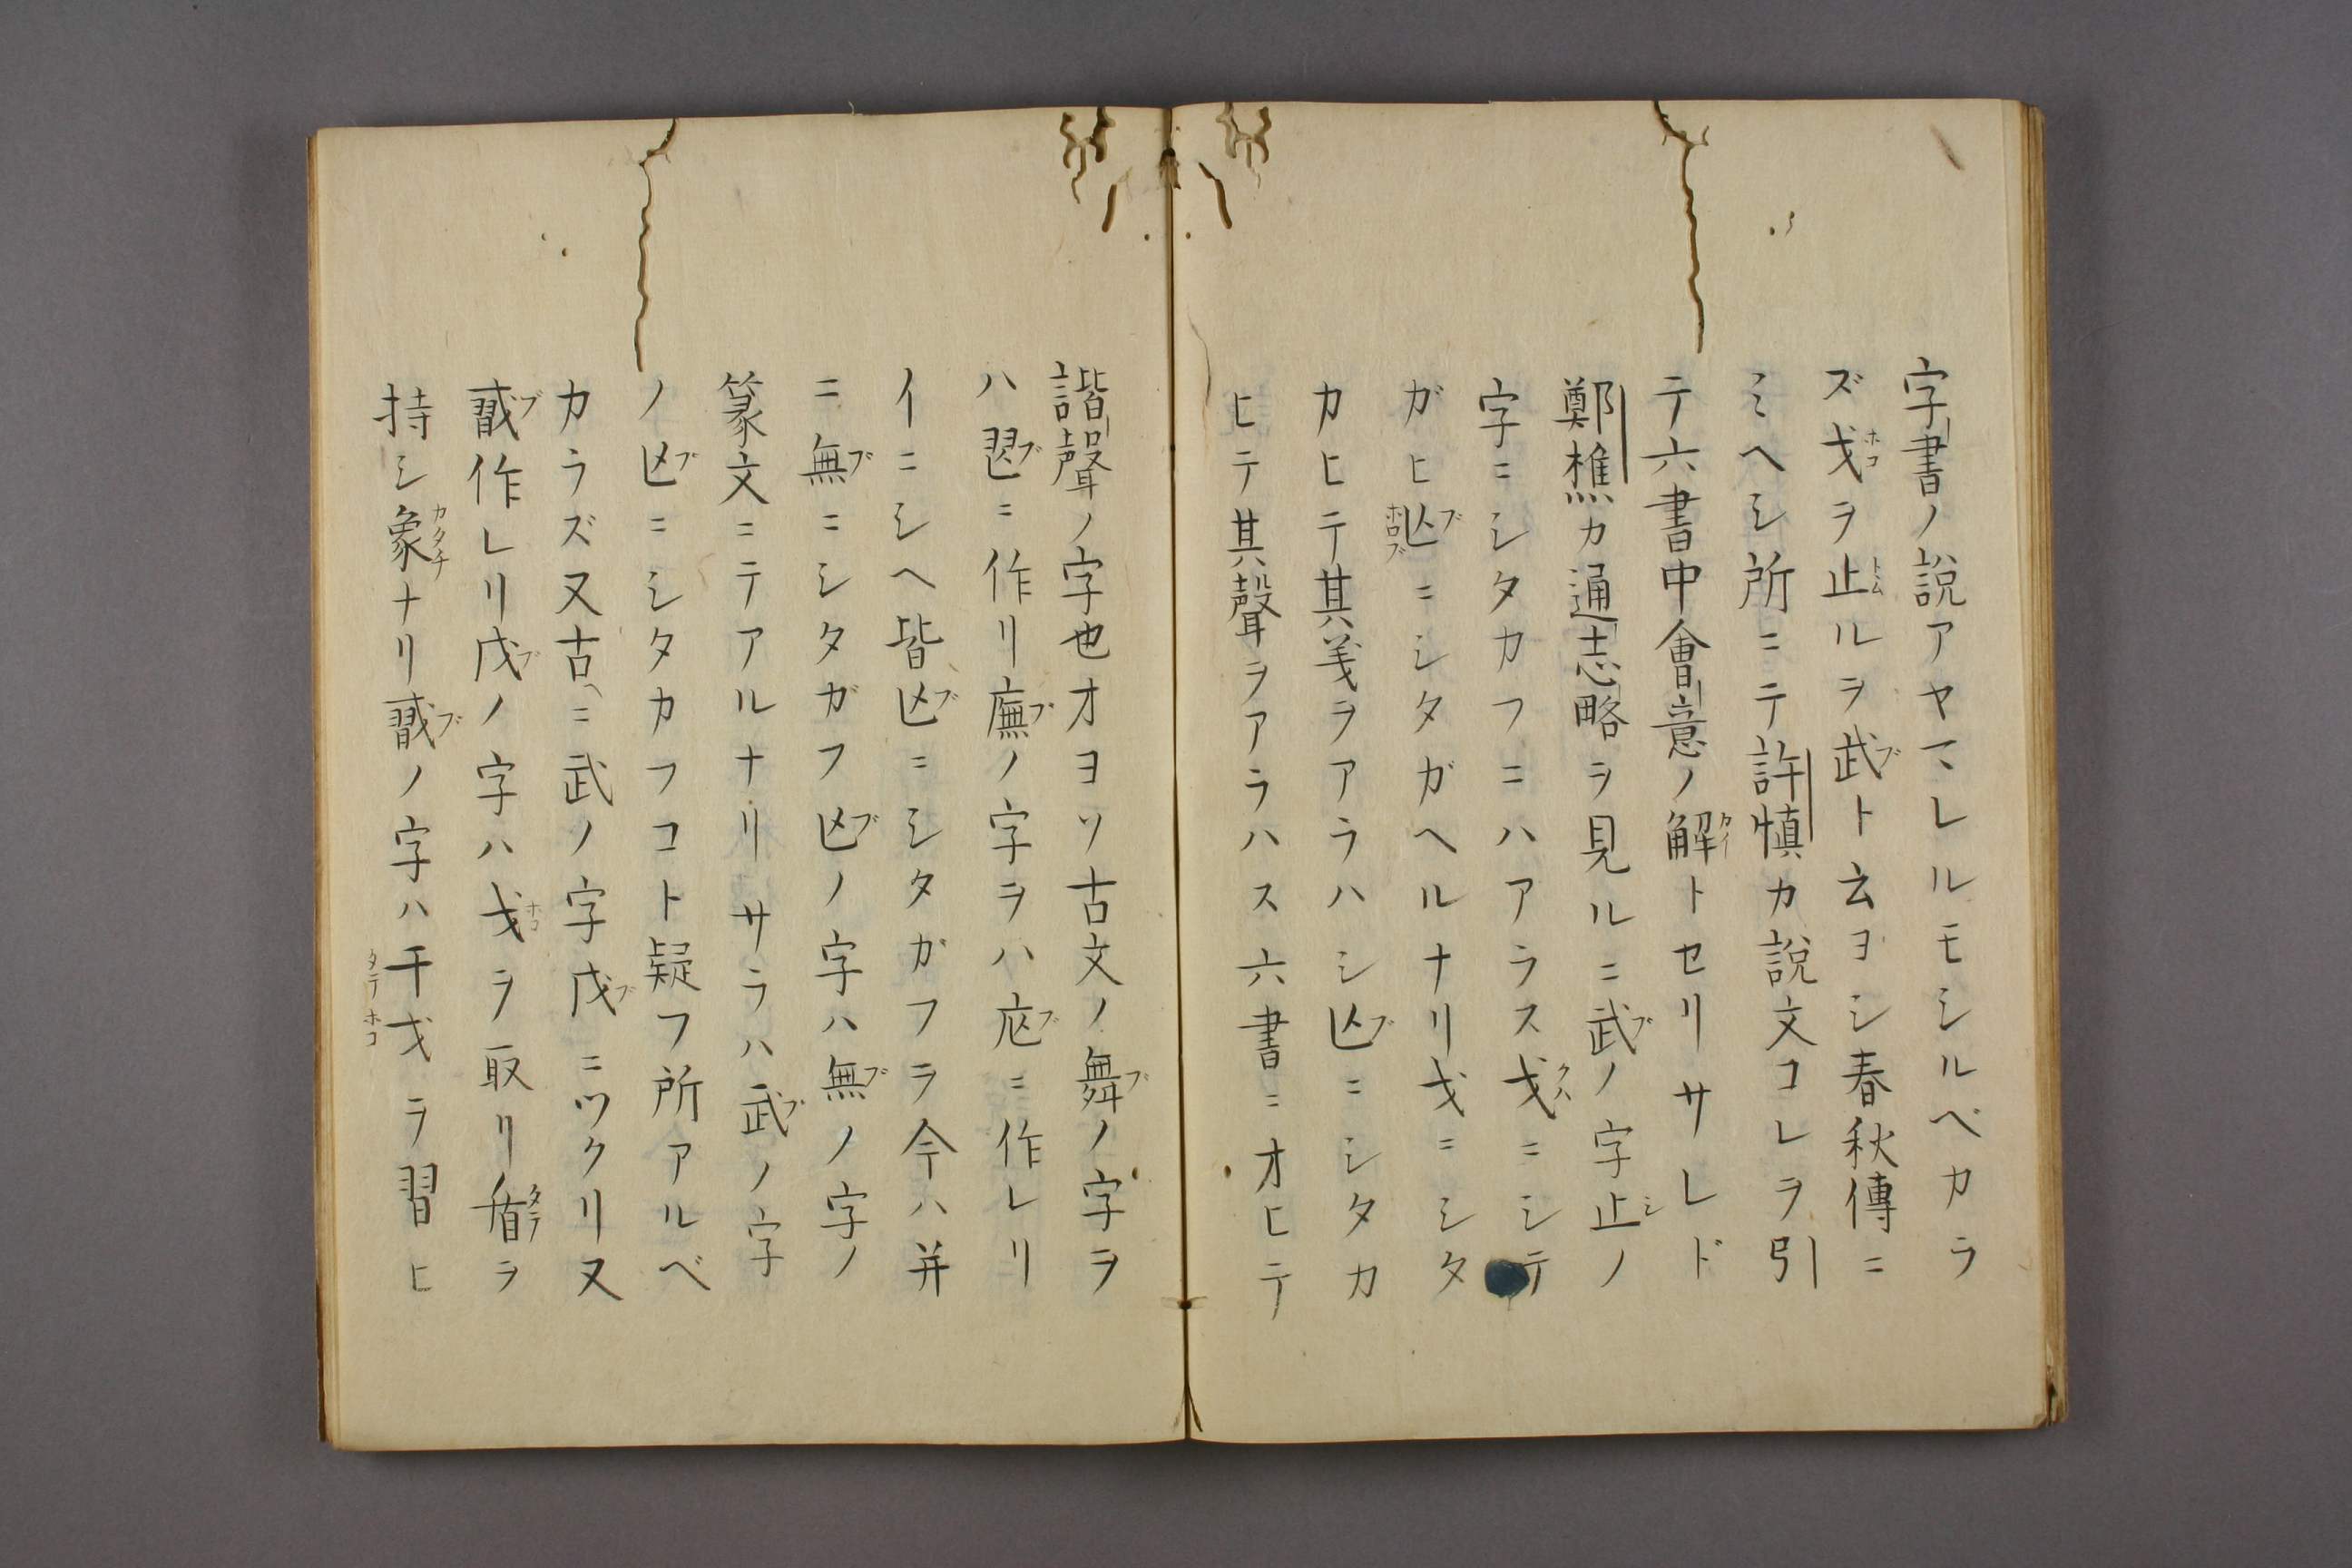 字書ノ說アヤマレルモシルベカラ
ズ戈ヲ止ルヲ武ト云ヨシ春秋傳ニ
ミヘシ所ニテ許愼カ說文コレヲ引
テ六書中會意ノ解トセリサレド
鄭樵カ通志略ヲ見ルニ武ノ字止ノ
字ニシタカフニハアラス戈ニシテ
ガヒ亾ニシタガヘルナリ戈ニシタ
カヒテ其義ヲアラハシ亾ニシタカ
ヒテ其聲ヲアラハス六書ニオヒテ
諧聲ノ字也オヨソ古文ノ舞ノ字ヲ
ハ䍿ニ作リ廡ノ字ヲハ㡆ニ作レリ
イニシヘ皆亾ニシタガフヲ今ハ并
ニ無ニシタガフ亾ノ字ハ無ノ字ノ
篆文ニテアルナリサラハ武ノ字
ノ亾ニシタカフコト疑フ所アルベ
カラズ又古ヘニ武ノ字戊ニツクリ又
作レリ戊ノ字ハ戈ヲ取リ盾ヲ
持シ象ナリノ字ハ干戈ヲ習ヒ